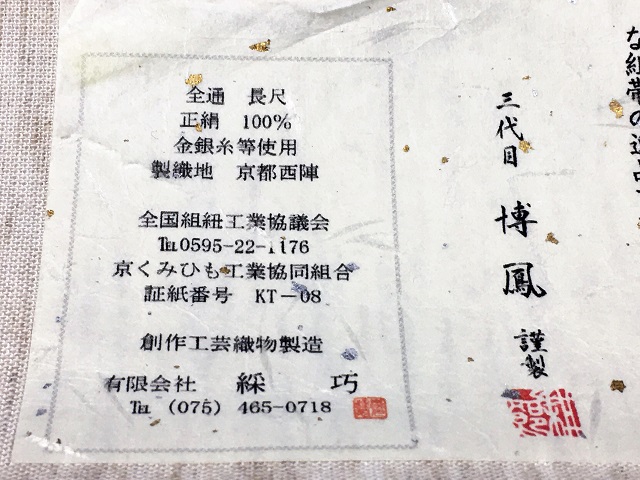 な組帯の逸品
三代目 博鳳 謹製
全通 長尺
正絹 100%
金銀糸等使用
製織地 京都西陣
全国組紐工業協議会
℡0595-22-1176
京くみひも工業協同組合
証紙番号 KT-08
創作工芸織物製造
有限会社 綵巧
℡ (075) 465-0718